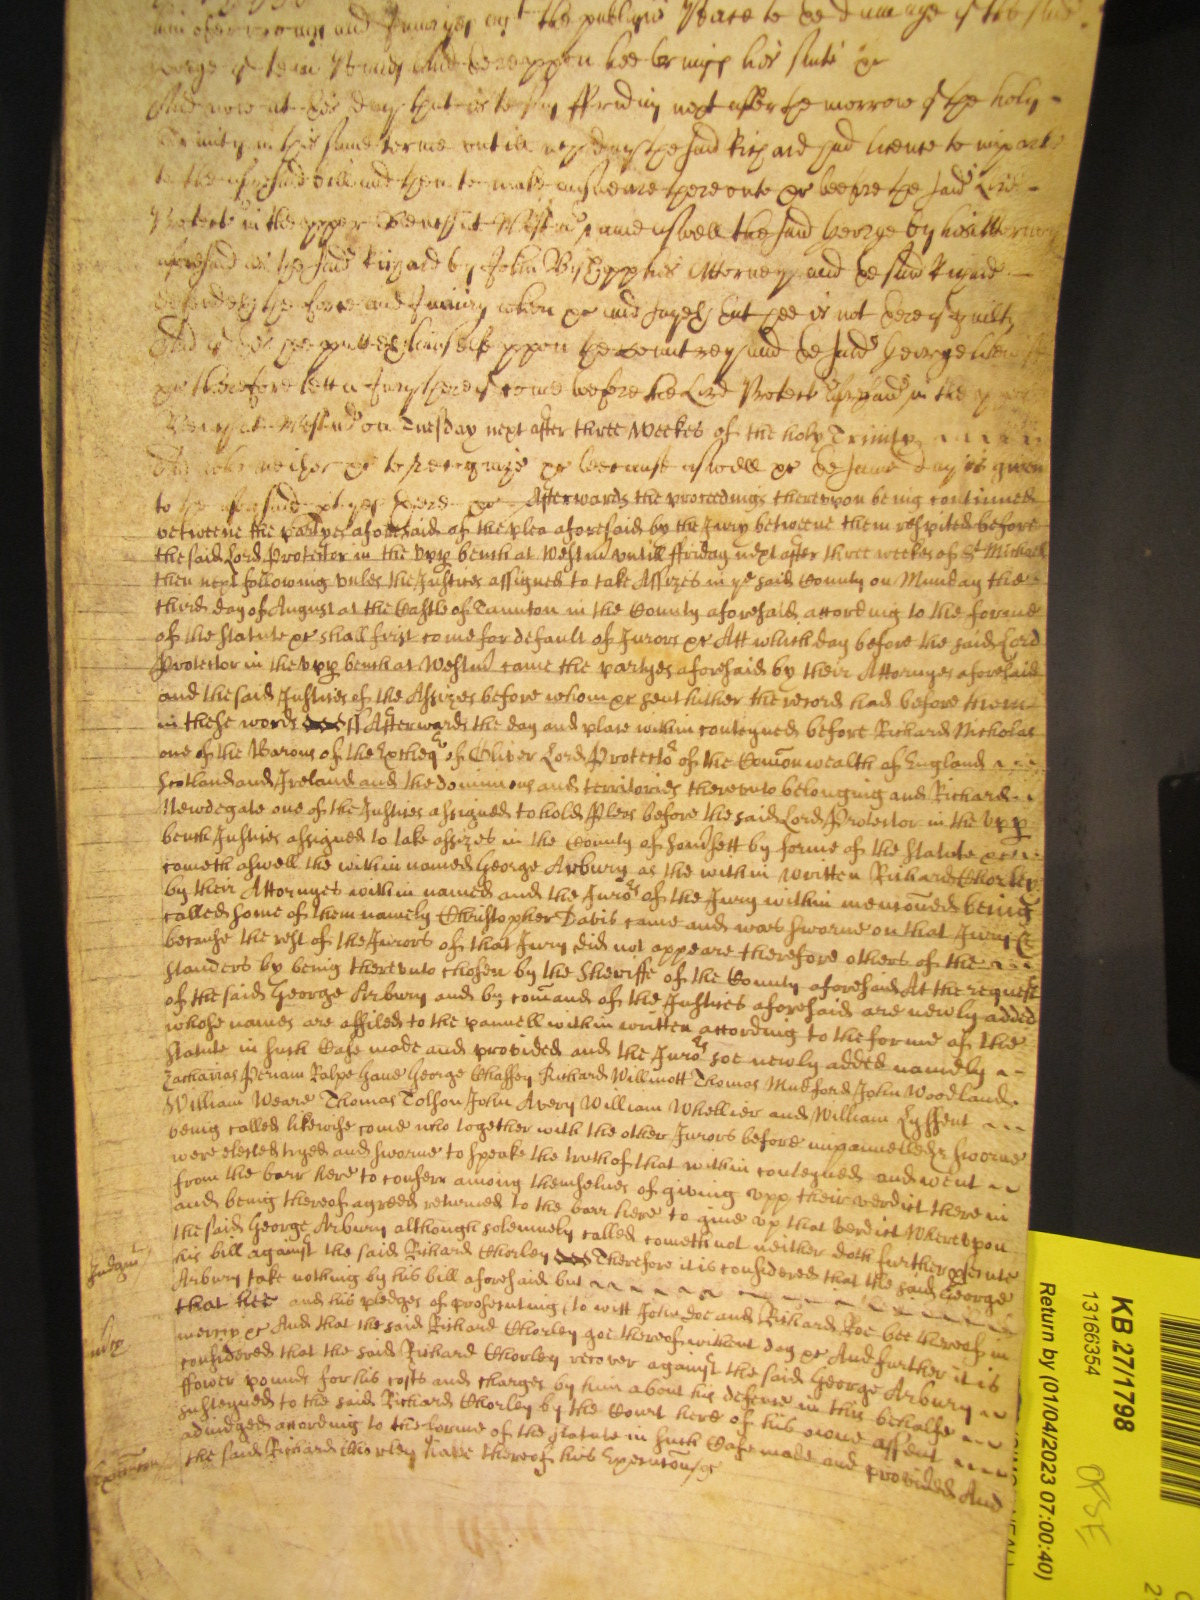 him other wrongs and Iniuryes against the publique Peace to the damage of the said
George of tenn Pounds And thereuppon hee brings his suite &c
And now at this day that is to say ffriday next after the morrow of the holy
Trinity in this same terme untill which day the said Richard had licence to imparle
to the aforesaid bill and then to make answeare thereunto &c before the said Lord
Protector in the upper Bench att Westmr came aswell the said George by his Attorney
aforesaid as the said Richard by John his Attorney and the said Richard
defendeth the force and Iniury when &c and sayeth that hee is not thereof guilty
And of this hee putteth himselfe uppon the Countrey and the said George likewise
&c therefore lett a Iury thereof come before the Lord Protector aforesaid in the upper
Bench at Westmr on Tuesday next after three weekes of the holy Trinity
And who neither &c to recognize &c because aswell &c the same day is given
to the aforesaid partyes there &c Afterwards the proceedings thereupon being continued
betweene the partyes aforesaid of the plea aforesaid by the Iury betweene them respited before
the said Lord Protector in the upp bench at Westmr untill ffriday next after three weekes of St Michaell
then next following unles the Iustices assigned to take Assizes in ye said County on Munday the
third day of August at the Castle of Taunton in the County aforesaid according to the forme
of the statute &c shall first come for default of Iurors &c Att which day before the said Lord
Protector in the upp bench at Westmr came the partyes aforesaid by their Attornyes aforesaid
and the said Iustices of the Assizes before whom &c sent hither the record had before them
in these words ss Afterwards the day and place within conteyned before Richard Nicholas
one of the Barons of the Excheqr of Oliver Lord Protector of the Comonwealth of England
Scotland and Ireland and the dominions and territories thereunto belonging and Richard
Newdegate one of the Iustices assigned to hold Plees before the said Lord Protector in the upp
bench Iustices assigned to take assizes in the County of Somsett by forme of the statute &c
cometh aswell the within named George Arbury as the within written Richard Chorley
by their Attornyes within named and the Iurors of the Iury within menconed being
called some of them namely Christopher Davis came and was sworne on that Iury &
because the rest of the Iurors of that Iury did not appeare therefore others of the
standers by being thereunto chosen by the Sheriffe of the County aforesaid At the request
of the said George Arbury and by comand of the Iustices aforesaid are newly added
whose names are affiled to the pannell within written according to the forme of the
statute in such Case made and provided and the Iurors soe newly added namely
Zacharias Periam Ralpe George Chaffey Richard Willmott Thomas Mudford John Woodland
William Weare Thomas Tolson John Avery William Whellier and William Lyffent
being called likewise come who together with the other Iurors before impannelled & sworne
were elected tryed and sworne to speake the truth of that within conteyned and went
from the barr here to conferr among themselves of giving upp their verdict therein
and being thereof agreed returned to the barr here to give up that verdict Whereupon
the said George Arbury although solemnely called cometh not neither doth further psecute
his bill against the said Richard Chorley Therefore it is considered that the said George
Iudgmt
Arbury take nothing by his bill aforesaid but
that hee and his pledges of prosecuting to witt John Doe and Richard Roe bee thereof in
mercy &c And that the said Richard Chorley goe thereof without day &c And further it is
considered that the said Richard Chorley recover against the said George Arbury
ffower pounds for his costs and charges by him about his defence in this behalfe
susteyned to the said Richard Chorley by the Court here of his owne assent
adiudged according to the forme of the statute in such Case made and provided And
the said Richard Chorley have thereof his Execucon &c
KB 27/1798
13166354
Return by (01/04/2023 07:00:40)